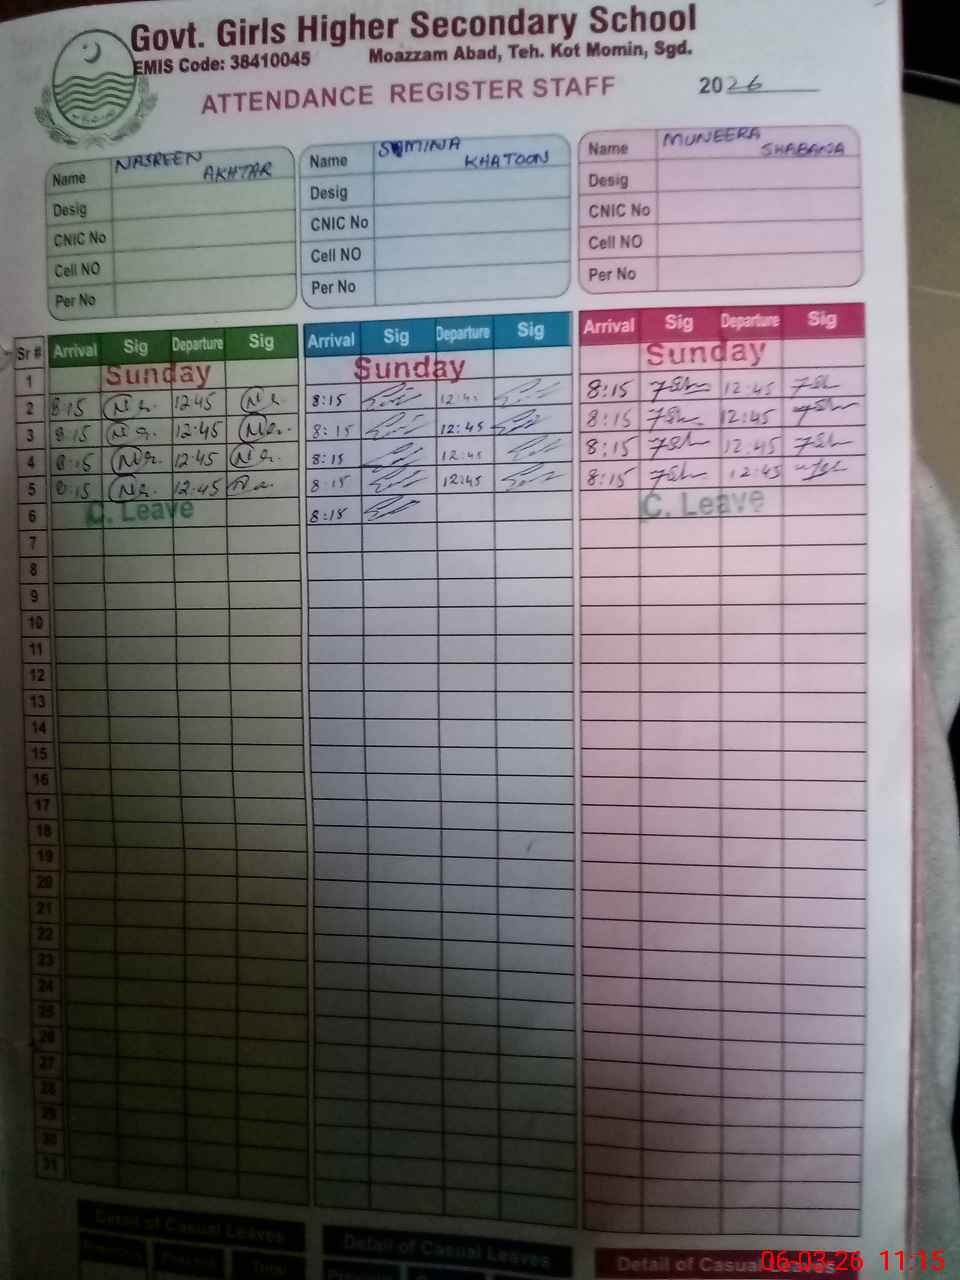 Govt. Girls Higher Secondary School
EMIS Code: 38410045 Moazzam Abad, Teh. Kot Momin, Sgd.
ATTENDANCE REGISTER STAFF 2026
Name NASREEN AKHTAR
Desig
CNIC No
Cell NO
Per No
Name SAMINA KHATOON
Desig
CNIC No
Cell NO
Per No
Name MUNEERA SHABANA
Desig
CNIC No
Cell NO
Per No
Sr # Arrival Sig Departure Sig Arrival Sig Departure Sig Arrival Sig Departure Sig
1 Sunday Sunday Sunday
2 8:15 12:45 8:15 12:45 8:15 12:45
3 8:15 12:45 8:15 12:45 8:15 12:45
4 8:15 12:45 8:15 12:45 8:15 12:45
5 8:15 12:45 8:15 12:45 8:15 12:45
6 C. Leave 8:15 C. Leave
7
8
9
10
11
12
13
14
15
16
17
18
19
20
21
22
23
24
25
26
27
28
29
30
31
Detail of Casual Leaves Detail of Casual Leaves Detail of Casual Leaves
Total
06-03-26 11:15